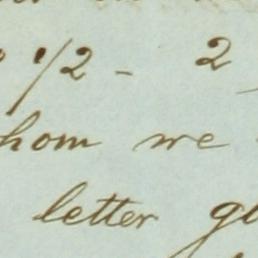 1/2 - 2
whom we
letter